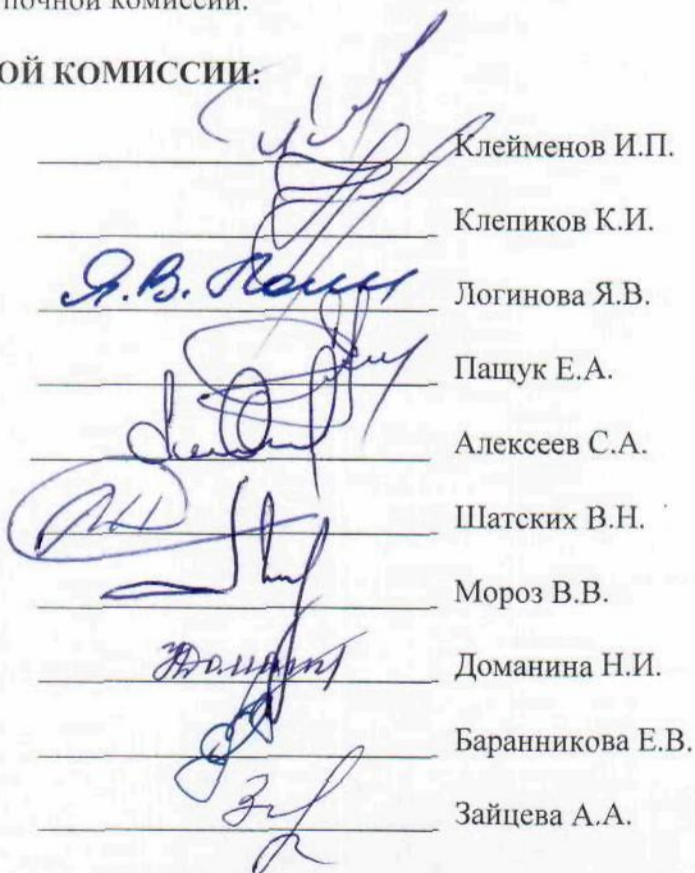 почной комиссии.
ОЙ КОМИССИИ:
Клейменов И.П.
Клепиков К.И.
Я.В. Логинова Я.В.
Пащук Е.А.
Алексеев С.А.
Шатских В.Н.
Мороз В.В.
Доманина Н.И.
Баранникова Е.В.
Зайцева А.А.